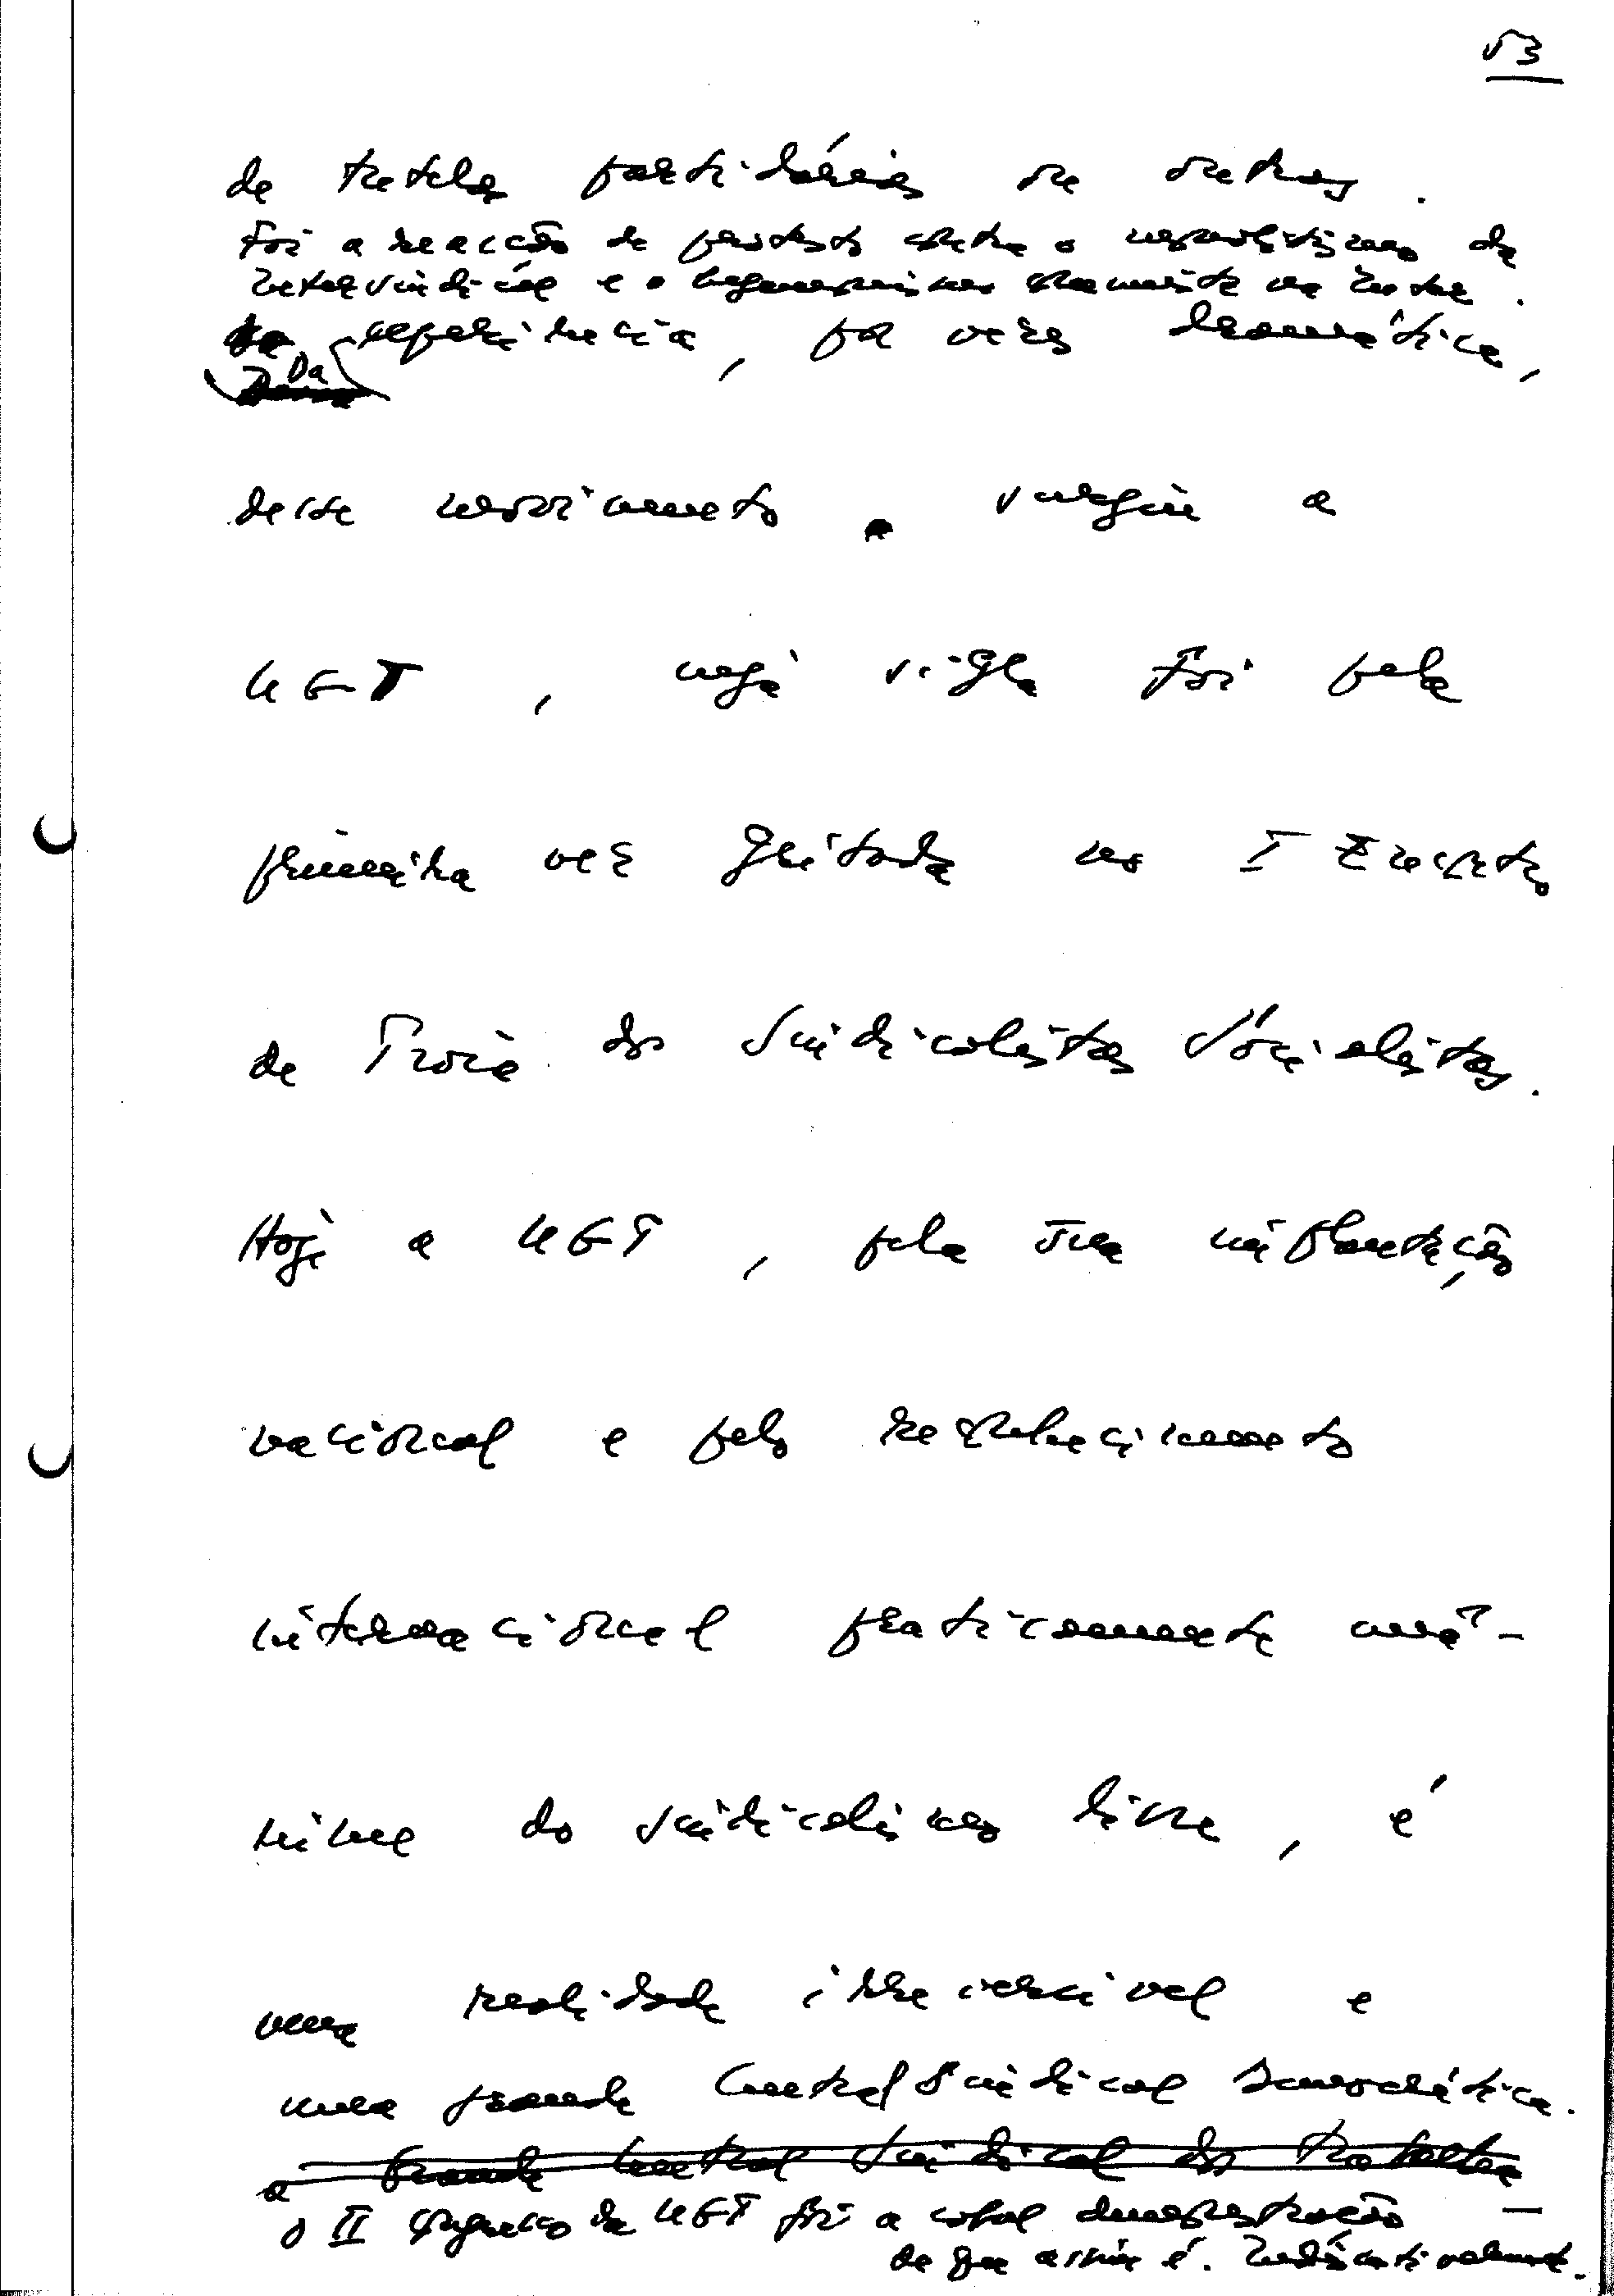 53
de tutelas partidárias ou outras.
Foi a reacção de protesto contra o monolitismo da
Intersindical e o hegemonismo comunista na Inter.
experiência, por vezes dramática,
Da
desse movimento surgiu a
UGT, cuja sigla foi pela
primeira vez gritada no I Encontro
de Troia dos Sindicalistas Socialistas.
Hoje a UGT, pela sua implantação
nacional e pelo reconhecimento
internacional praticamente unâ-
nime do sindicalismo livre, é
uma realidade irreversível e
uma grande Central Sindical Democrática.
a grande Central Sindical dos Trabalha-
O II Congresso da UGT foi a cabal demonstração
de que assim é. Indiscutivelmente.